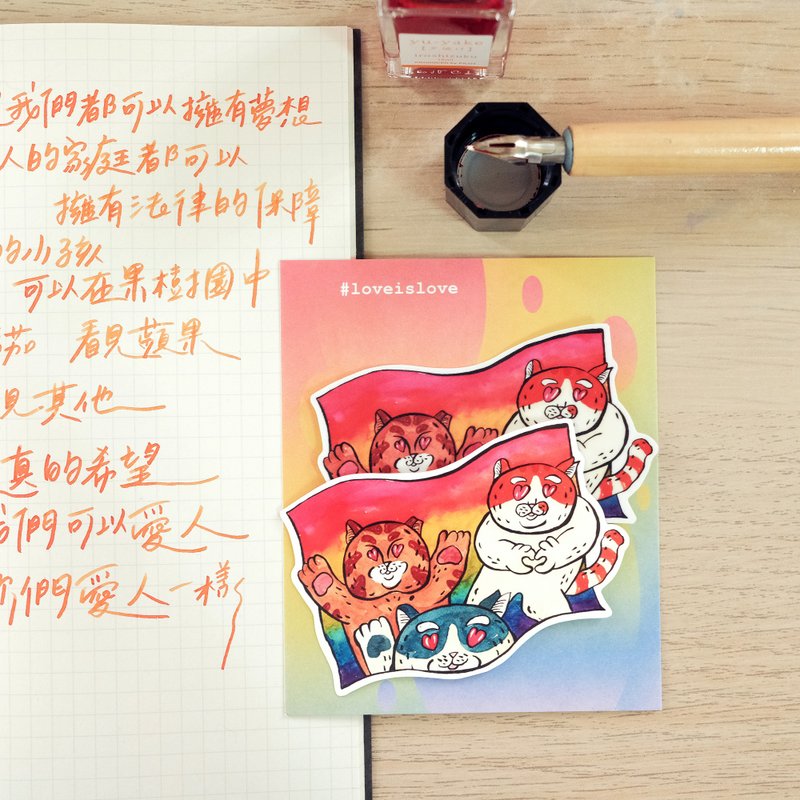 yu-yake
iroshizuku
我們都可以擁有夢想
人的家庭都可以
擁有法律的保障
的小孩
可以在果樹園中
茄 看見蘋果
見其他
真的希望
我們可以愛人
你們愛人一樣
#loveislove